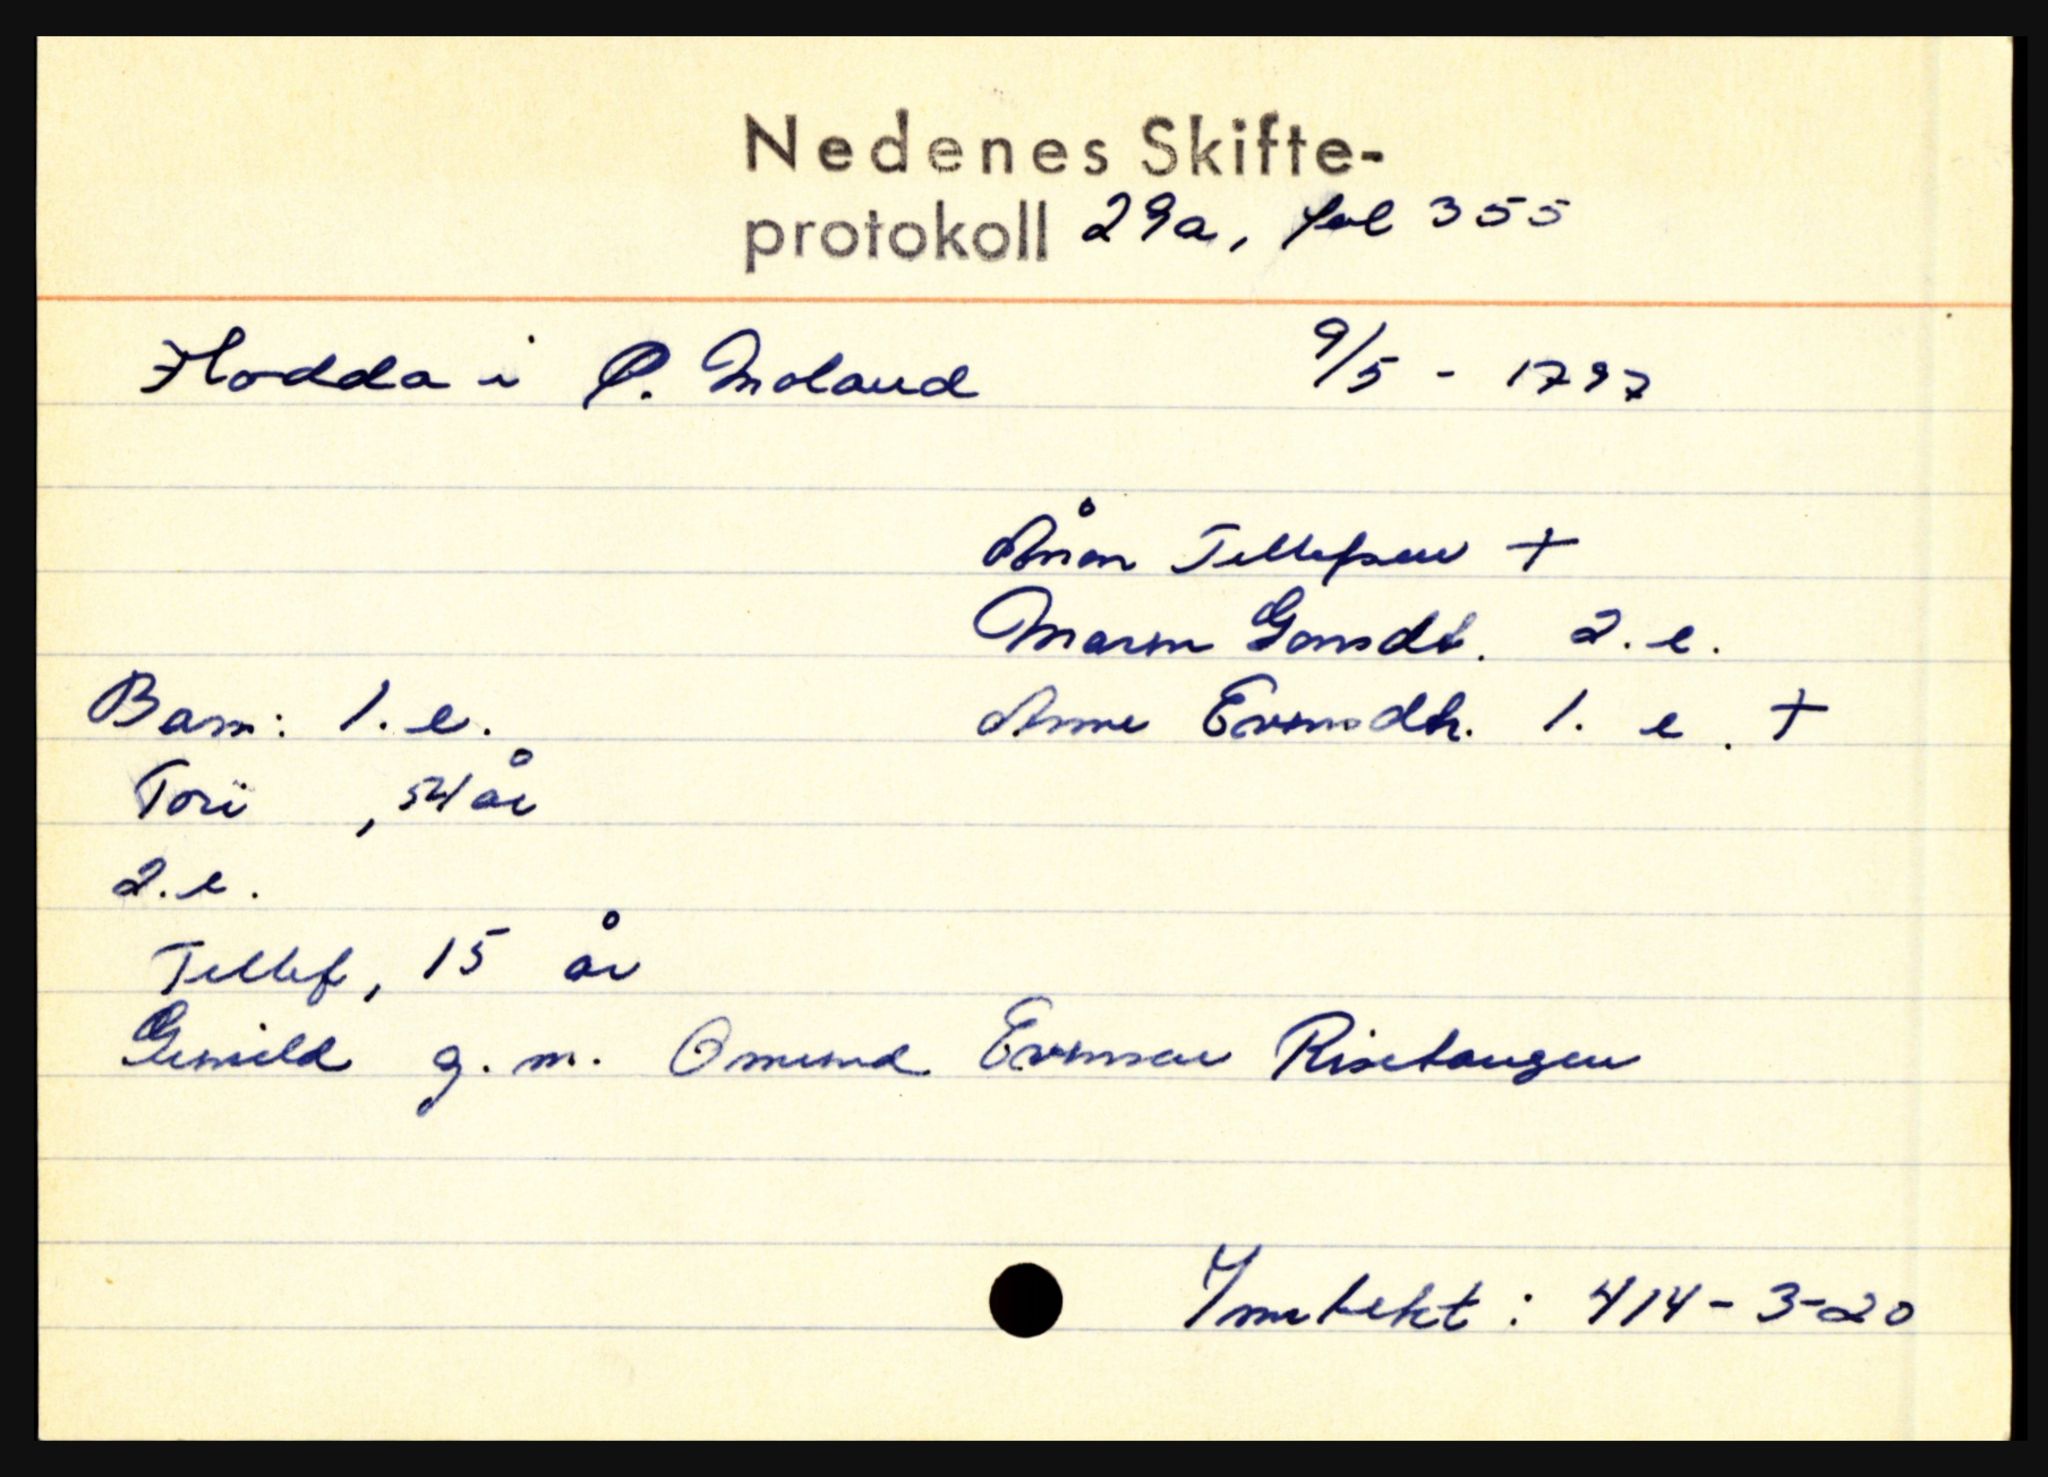 Nedenes Skifte-
protokoll 29a, fol 355
Hodda i Ø. Moland 9/5 - 1797
Ånon Tellefsen +
Maren Gonsdt. 2. e.
Barn: 1. e. Anne Evensdtr. 1. e. +
Tori , 54 år
2. e.
Tellef, 15 år
Gunild g. m. Omund Evensen Risetangen
Inntekt: 414-3-20